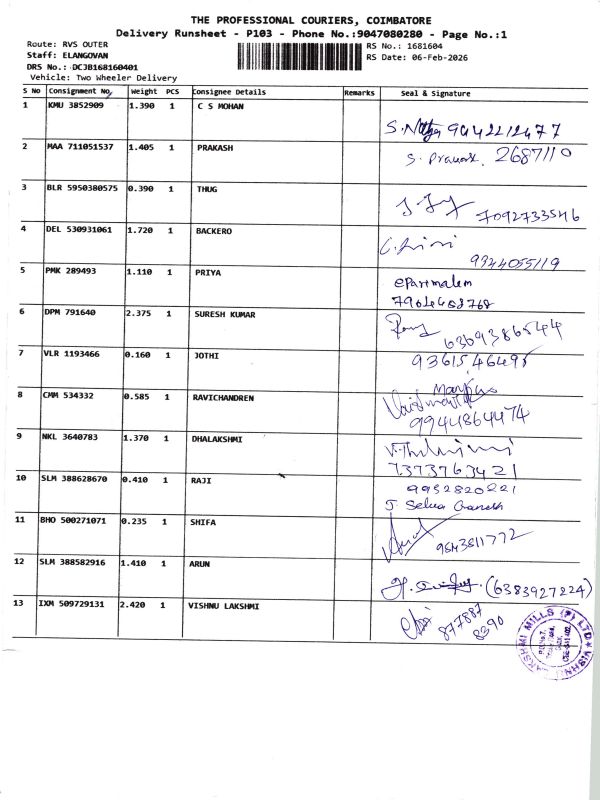 THE PROFESSIONAL COURIERS, COIMBATORE
Delivery Runsheet - P103 - Phone No.:9047080280 - Page No.:1
Route: RVS OUTER
RS No.: 1681604
Staff: ELANGOVAN
RS Date: 06-Feb-2026
DRS No.: DCJB168160401
Vehicle: Two Wheeler Delivery
S No Consignment No. Weight PCS Consignee Details Remarks Seal & Signature
1 KMU 3852909 1.390 1 C S MOHAN
9442212477
2 MAA 711051537 1.405 1 PRAKASH
2687110
3 BLR 5950380575 0.390 1 THUG
7092733546
4 DEL 530931061 1.720 1 BACKERO
9944055119
5 PMK 289493 1.110 1 PRIYA
6 DPM 791640 2.375 1 SURESH KUMAR
6369386544
7 VLR 1193466 0.160 1 JOTHI
9361546495
8 CMM 534332 0.585 1 RAVICHANDREN
9944864474
9 NKL 3640783 1.370 1 DHALAKSHMI
7373763421
10 SLM 388628670 0.410 1 RAJI
9952820221
J. Selva Ganesh
11 BHO 500271071 0.235 1 SHIFA
9843811772
12 SLM 388582916 1.410 1 ARUN
(6383927224)
13 IXM 509729131 2.420 1 VISHNU LAKSHMI
877887
8390
VISHNU LAKSHMI MILLS (P) LTD